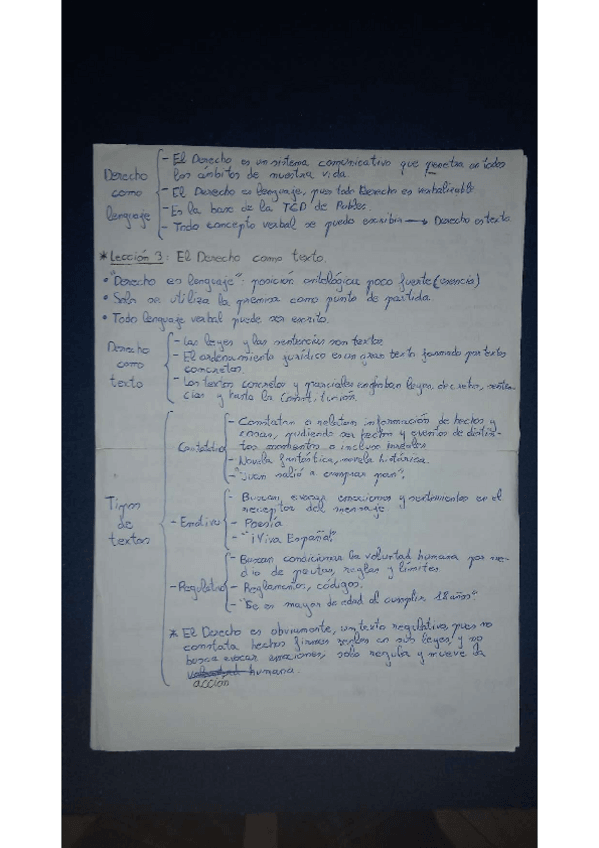 Derecho como lenguaje
- El Derecho es un sistema comunicativo que penetra en todos
los ámbitos de nuestra vida.
- El Derecho es lenguaje, pues todo Derecho es verbalizable
- Es la base de la TCD de Robles.
- Todo concepto verbal se puede escribir → Derecho es texto
* Lección 3: El Derecho como texto.
• "Derecho es lenguaje": posición ontológica poco fuerte (esencia)
• Solo se utiliza la premisa como punto de partida.
• Todo lenguaje verbal puede ser escrito.
Derecho como texto
- Las leyes y las sentencias son textos.
- El ordenamiento jurídico es un gran texto formado por textos
concretos.
- Los textos concretos y parciales engloban leyes, decretos, senten-
cias y hasta la Constitución.
Tipos de textos
- Constatativo
- Constatan o relatan información de hechos y
cosas, pudiendo ser hechos y eventos de distin-
tos momentos o incluso irreales
- Novela fantástica, novela histórica.
- "Juan salió a comprar pan".
- Emotivo
- Buscan evocar emociones y sentimientos en el
receptor del mensaje
- Poesía
- "¡Viva España!"
- Regulativo
- Buscan condicionar la voluntad humana por me-
dio de pautas, reglas y límites
- Reglamentos, códigos.
- "Se es mayor de edad al cumplir 18 años"
* El Derecho es obviamente, un texto regulativo, pues no
constata hechos firmes reales en sus leyes, y no
busca evocar emociones, solo regula y mueve la
voluntad humana.
acción